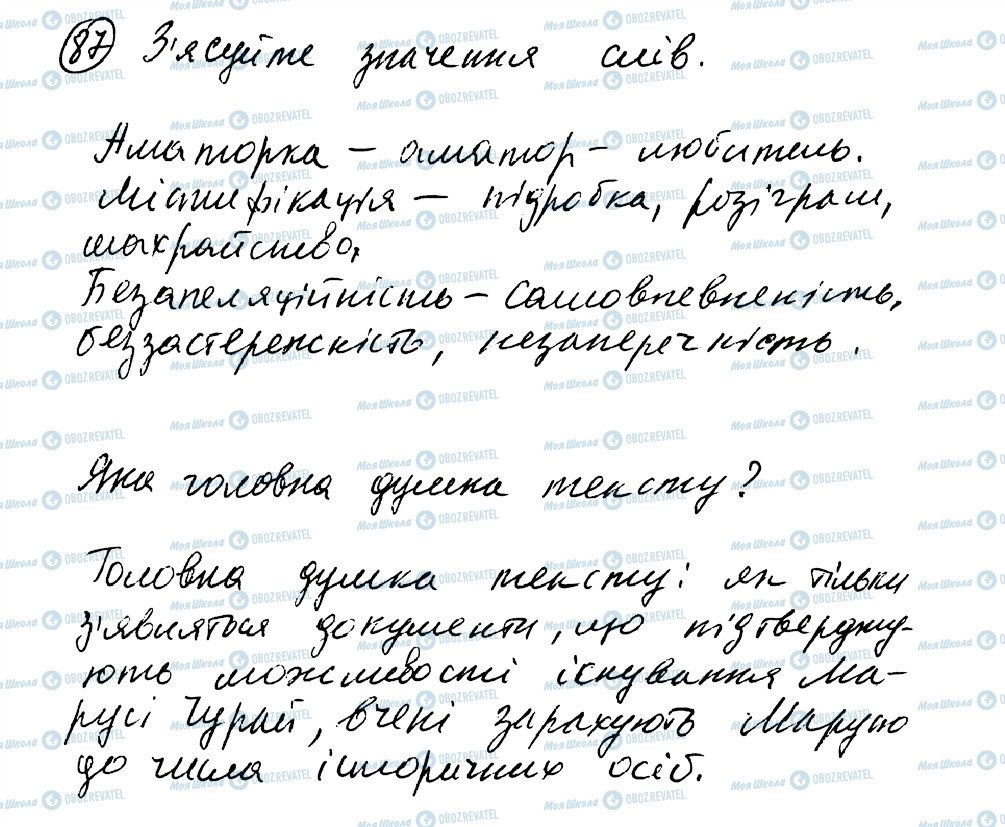 87 З'ясуйте значення слів.
Аматорка – аматор – любитель.
Містифікація – підробка, розіграш,
шахрайство,
Безапеляційність – самовпевненість,
беззастережність, незаперечність.
Яка головна думка тексту?
Головна думка тексту: як тільки
з'явияться документи, що підтверджу-
ють можливості існування Ма-
русі Чурай, вчені зарахують Марусю
до числа історичних осіб.